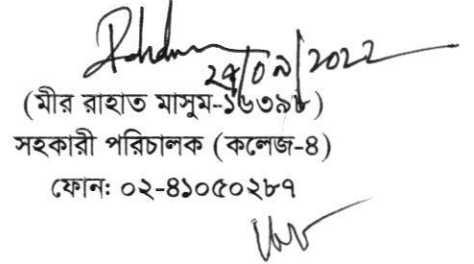 ২৭/০৯/2022
(মীর রাহাত মাসুম-১৬৩৯৮)
সহকারী পরিচালক (কলেজ-৪)
ফোন: ০২-৪১০৫০২৮৭